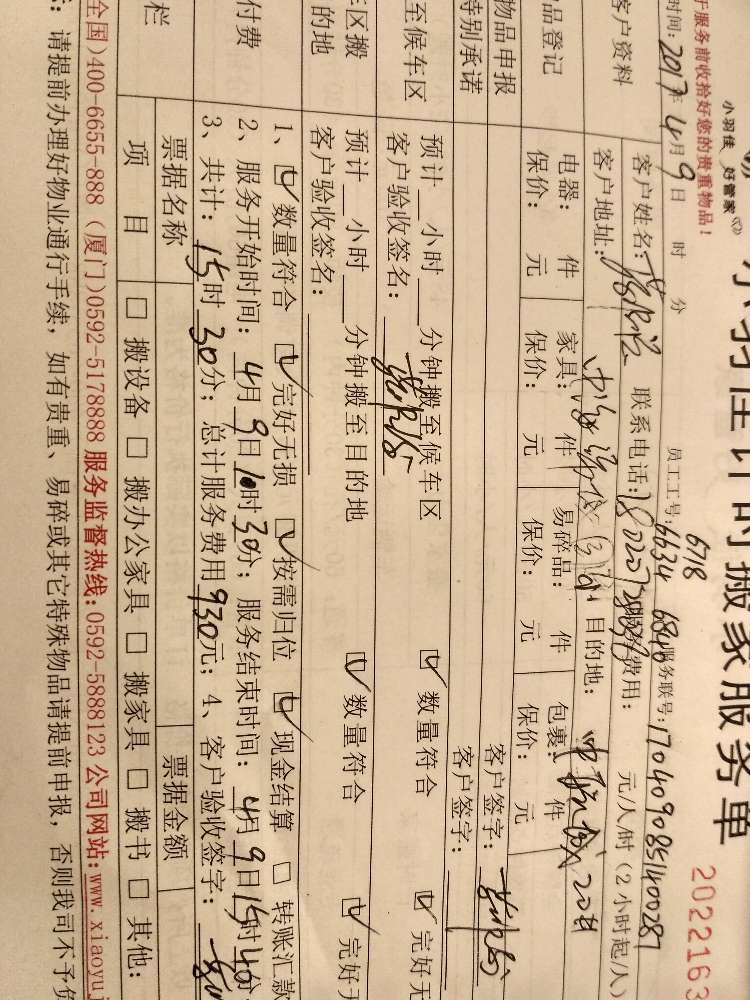 小羽佳 计时搬家服务单
小羽佳 好管家
于服务前收拾好您的贵重物品！
2022163
员工工号：6634 6718 6840 服务联号：1704090851400287
时间：2017年4月9日 时 分
客户资料
客户姓名： 联系电话： 服务费用： 元/人/时（2小时起/八
客户地址： 目的地：
品登记
电器： 件 家具： 件 易碎品： 件 包裹： 件
保价： 元 保价： 元 保价： 元 保价： 元
物品申报 客户签字：
特别承诺 客户签字：
至候车区
预计__小时__分钟搬至候车区 数量符合 完好无
客户验收签名：
车区搬
的地
预计__小时__分钟搬至目的地 数量符合 完好无
客户验收签名：
付费
1、数量符合 完好无损 按需归位 现金结算 转账汇款
2、服务开始时间：4月9日10时30分；服务结束时间：4月9日15时40分
3、共计：15时30分；总计服务费用930元；4、客户验收签字：
栏
票据名称 票据金额
项目 搬设备 搬办公家具 搬家具 搬书 其他：
全国)400-6655-888 (厦门)0592-5178888 服务监督热线:0592-5888123 公司网站:www.xiaoyuj
：请提前办理好物业通行手续，如有贵重、易碎或其它特殊物品请提前申报，否则我司不予负